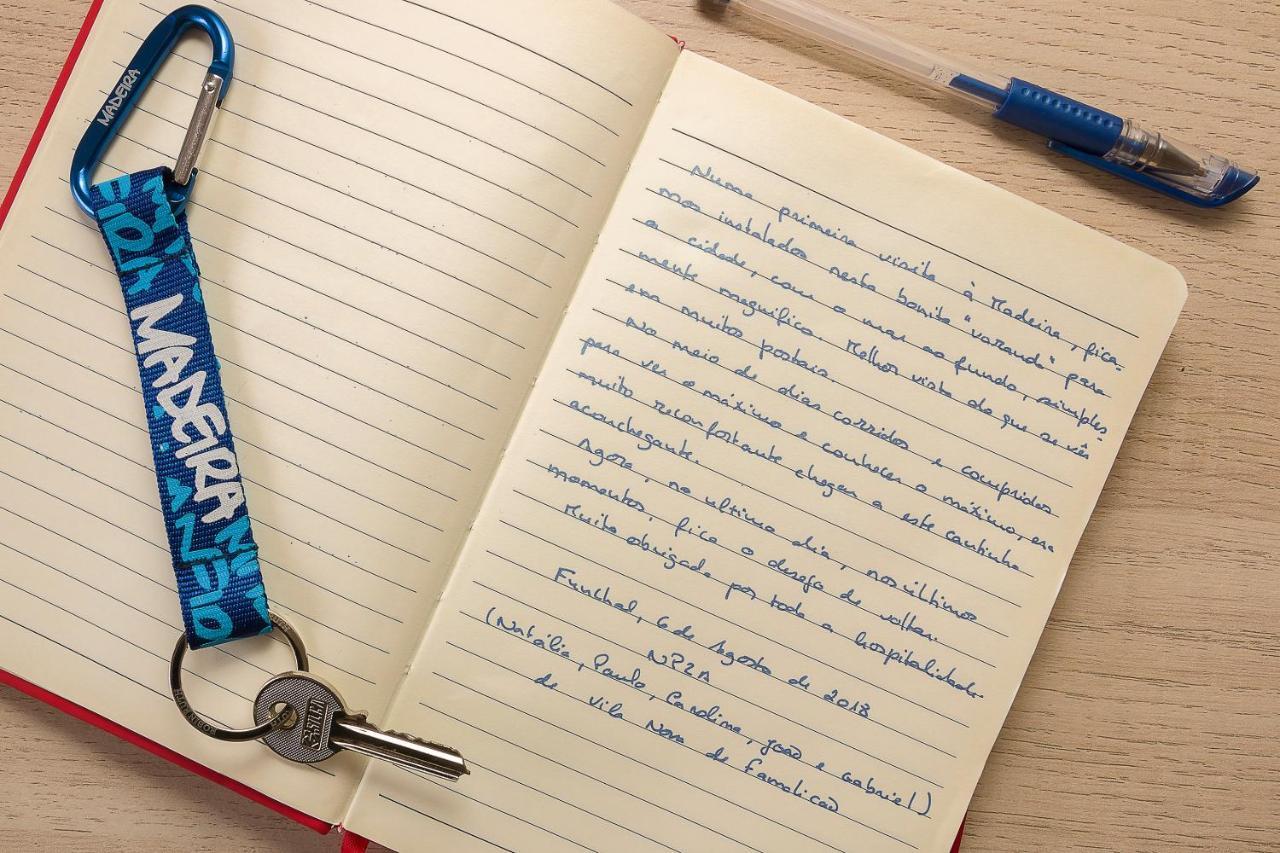 MADEIRA
MADEIRA
Numa primeira visita à Madeira, fica-
mos instalados nesta bonita "varanda" para
a cidade, com o mar ao fundo, simples-
mente magnífica. Melhor vista do que se vês
em muitos postais.
No meio de dias corridos e compridos
para ver o máximo e conhecer o máximo, era
muito reconfortante chegar a este cantinho
aconchegante.
Agora, no ultimo dia, nos últimos
momentos, fica o desejo de voltar.
Muito obrigada por toda a hospitalidade.
Funchal, 6 de Agosto de 2018
(Natália, Paulo, Carolina, João e Gabriel)
de Vila Nova de Famalicão